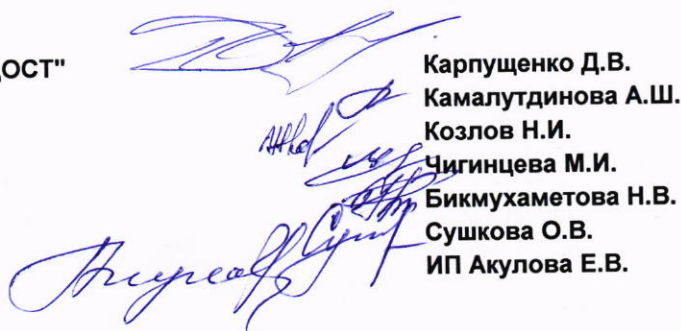 ДОСТ"
Карпущенко Д.В.
Камалутдинова А.Ш.
Козлов Н.И.
Чигинцева М.И.
Бикмухаметова Н.В.
Сушкова О.В.
ИП Акулова Е.В.